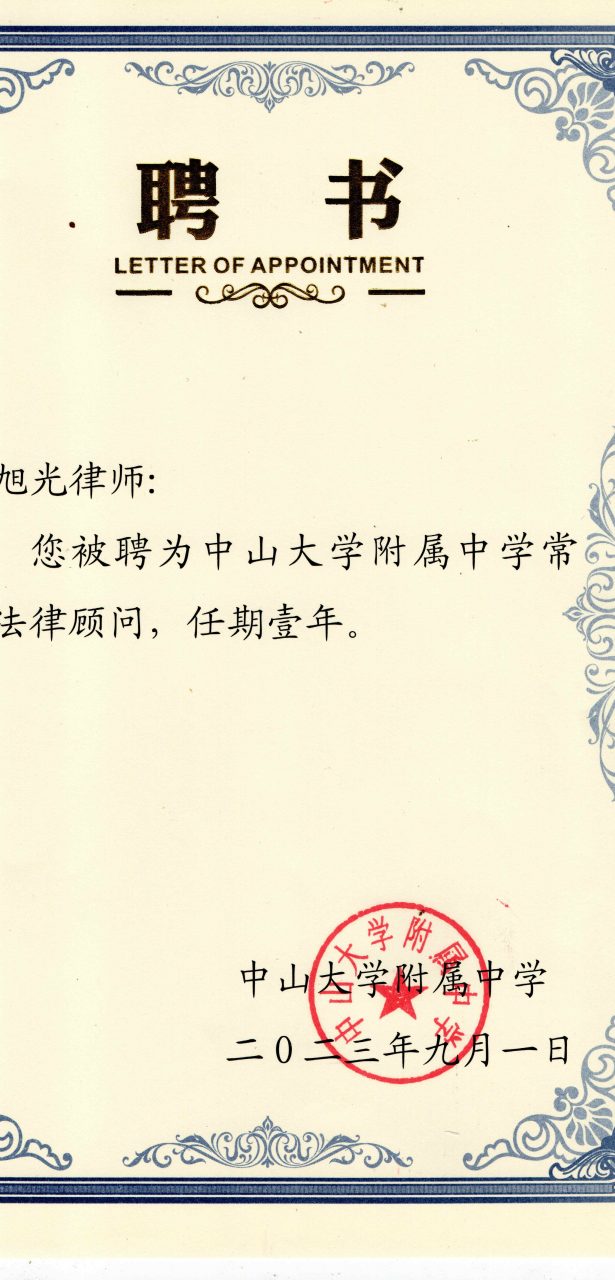 聘 书
LETTER OF APPOINTMENT
旭光律师:
您被聘为中山大学附属中学常
法律顾问，任期壹年。
中山大学附属中学
中山大学附属中学
二0二三年九月一日